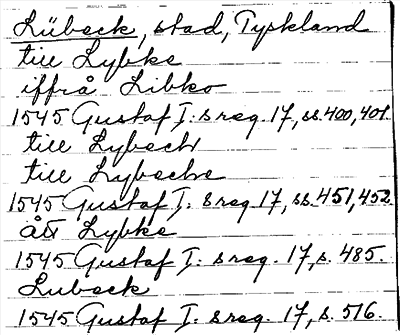 Lübeck, stad, Tyskland
till Lybke
iffrå Libko
1545 Gustaf I: s reg. 17, ss. 400, 401.
till Lybech
till Lybeche
1545 Gustaf I: s reg. 17, ss. 451, 452.
ått Lybke
1545 Gustaf I: s reg. 17, s. 485.
Lubeck
1545 Gustaf I: s reg. 17, s. 516.